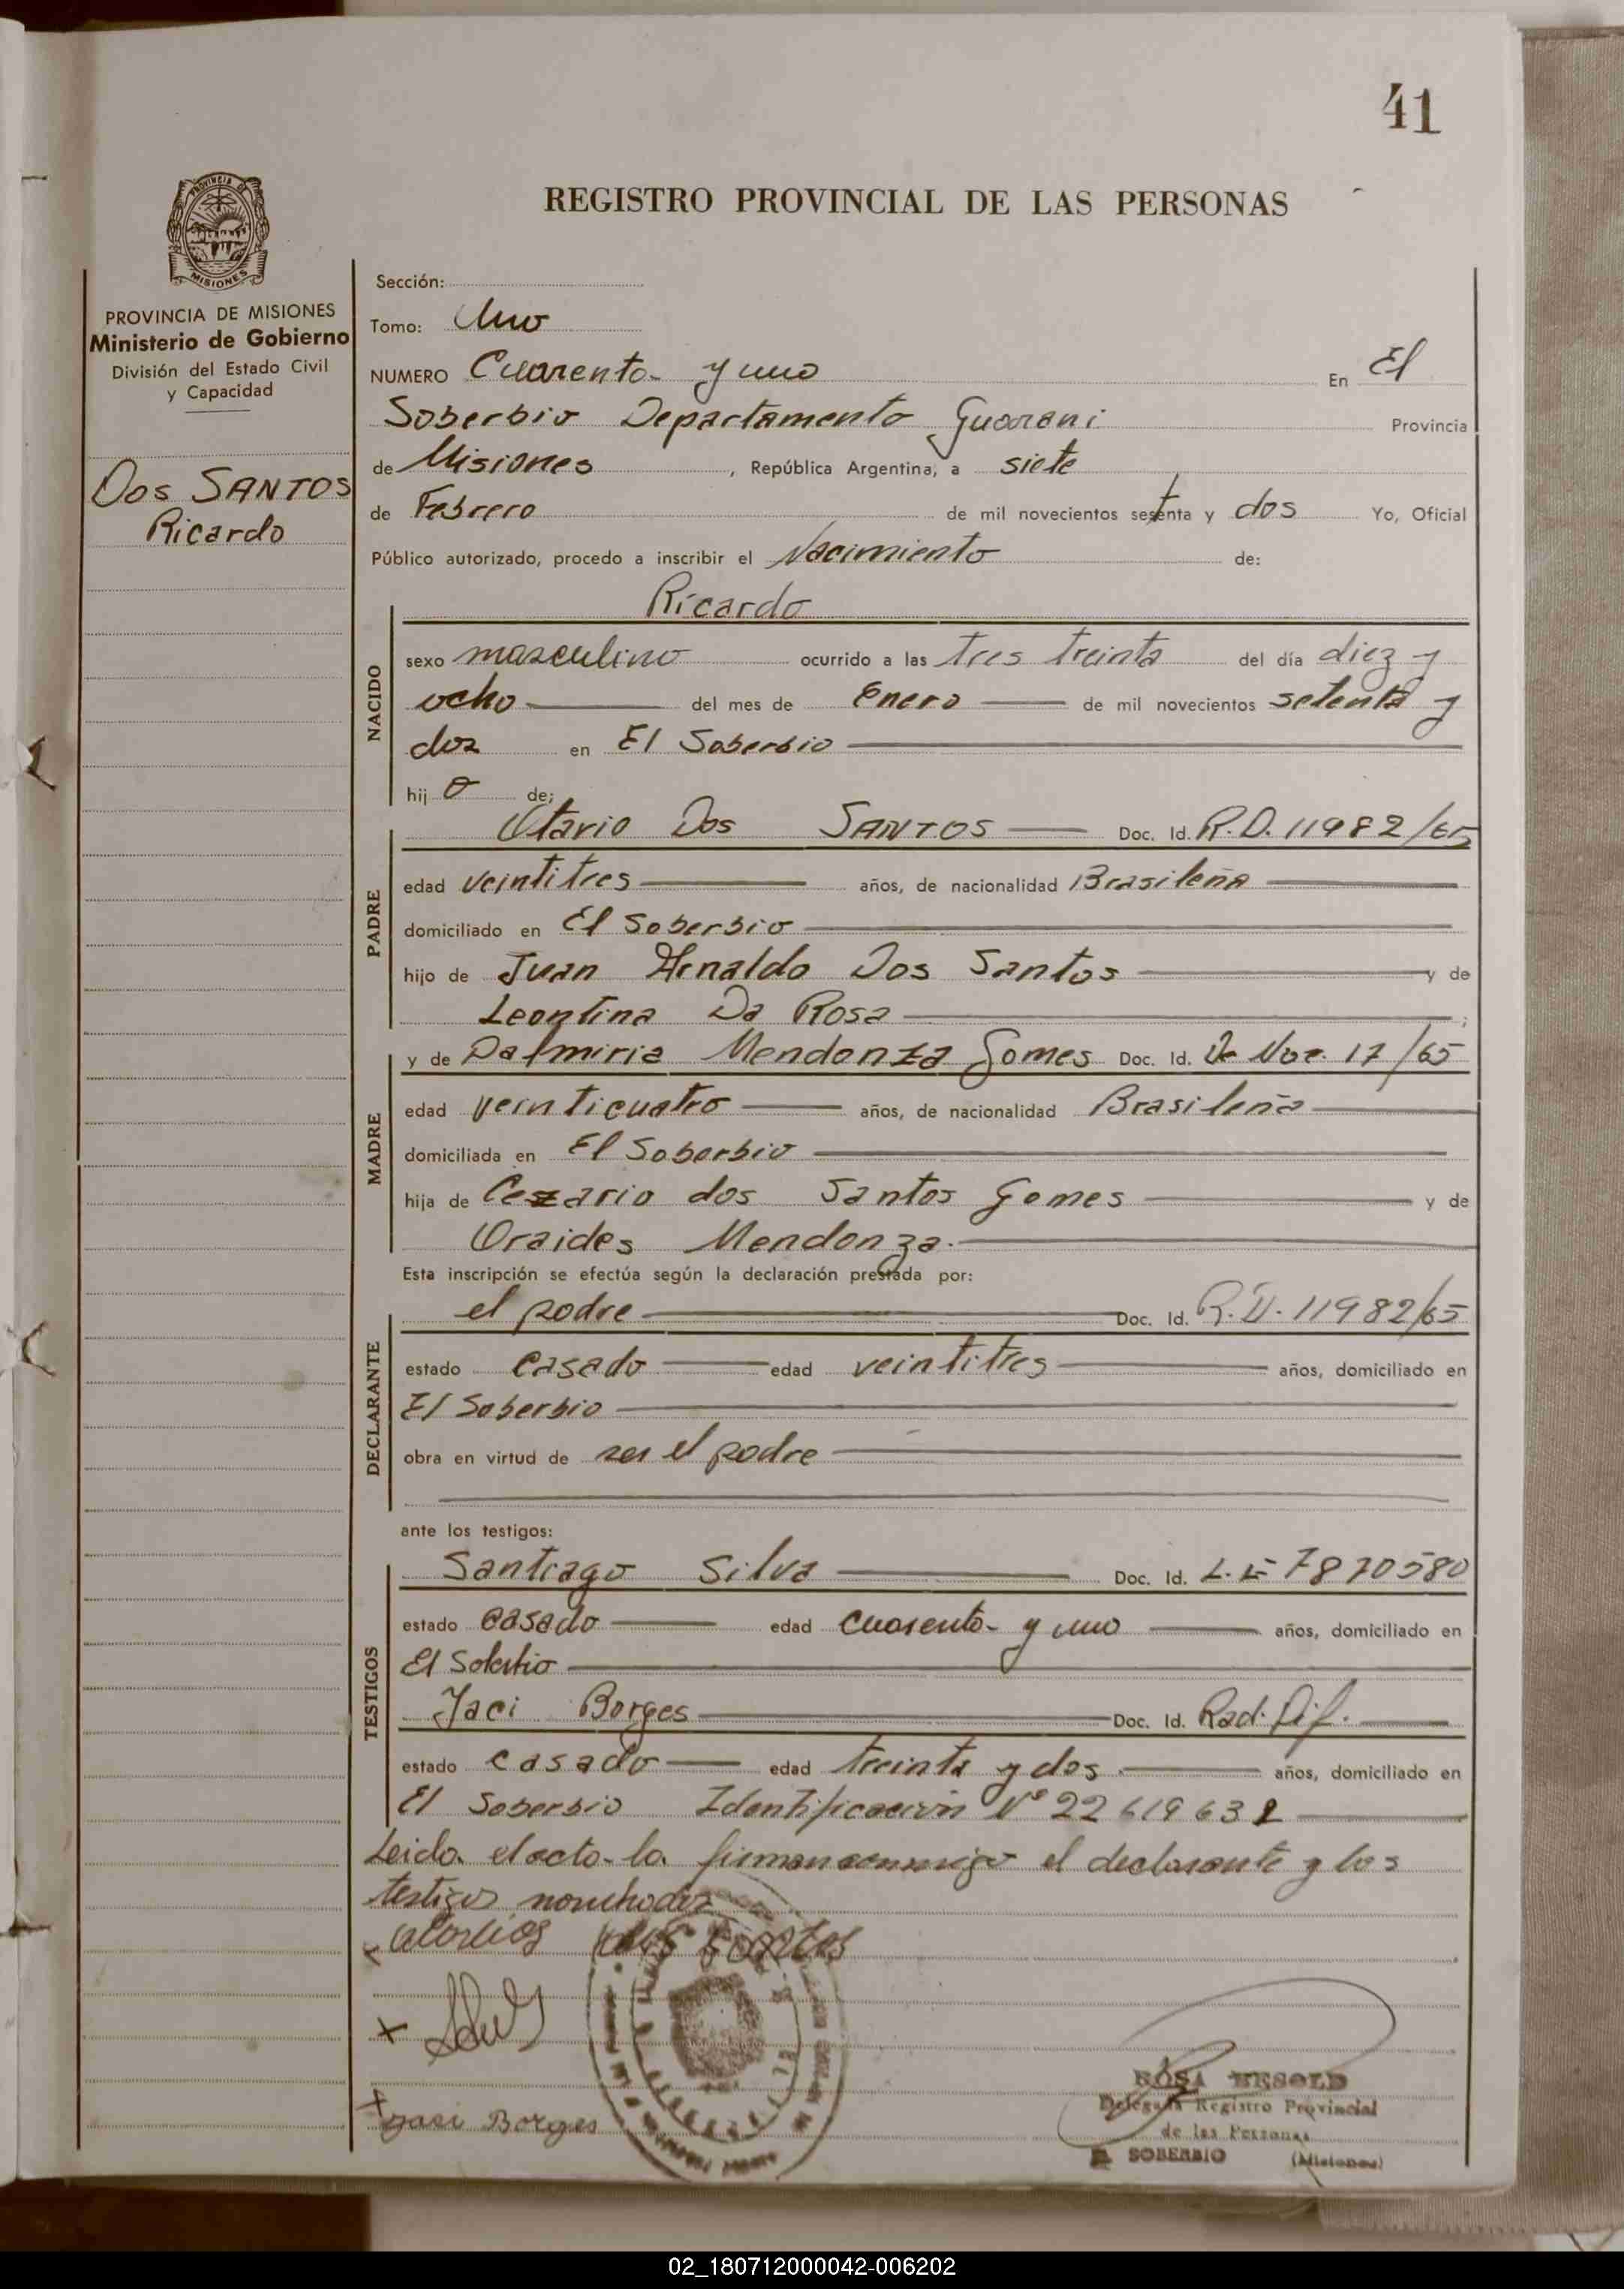 41
REGISTRO PROVINCIAL DE LAS PERSONAS
PROVINCIA DE
MISIONES
PROVINCIA DE MISIONES
Ministerio de Gobierno
División del Estado Civil
y Capacidad
Dos SANTOS
Ricardo
Sección:
Tomo: Uno
NUMERO Cuarenta y uno En El
Soberbio Departamento Guarani Provincia
de Misiones, República Argentina, a siete
de Febrero de mil novecientos setenta y dos Yo, Oficial
Público autorizado, procedo a inscribir el Nacimiento de:
Ricardo
NACIDO
sexo masculino ocurrido a las tres treinta del día diez y
ocho del mes de Enero de mil novecientos setenta y
dos en El Soberbio
hij o de:
PADRE
Otario Dos SANTOS Doc. Id. R.D. 11982/65
edad veintitres años, de nacionalidad Brasileña
domiciliado en El Soberbio
hijo de Juan Arnaldo Dos Santos y de
Leontina Da Rosa ;
MADRE
y de Dalmiria Mendonza Gomes Doc. Id. Nac. 17/65
edad veinticuatro años, de nacionalidad Brasileña
domiciliada en El Soberbio
hija de Cezario dos Santos Gomes y de
Oraides Mendonza.
Esta inscripción se efectúa según la declaración prestada por:
DECLARANTE
el padre Doc. Id. R.D. 11982/65
estado casado edad veintitres años, domiciliado en
El Soberbio
obra en virtud de ser el padre
ante los testigos:
TESTIGOS
Santiago Silva Doc. Id. L.E 7870580
estado casado edad cuarenta y uno años, domiciliado en
El Soberbio
Jaci Borges Doc. Id. Rad. Dif.
estado casado edad treinta y dos años, domiciliado en
El Soberbio Identificación Nº 22619632
Leida el acta la firman conmigo el declarante y los
testigos nombrados
dos Santos
Jaci Borges
ROSA BESOLD
Delegada Registro Provincial
de las Personas
EL SOBERBIO (Misiones)
02_180712000042-006202